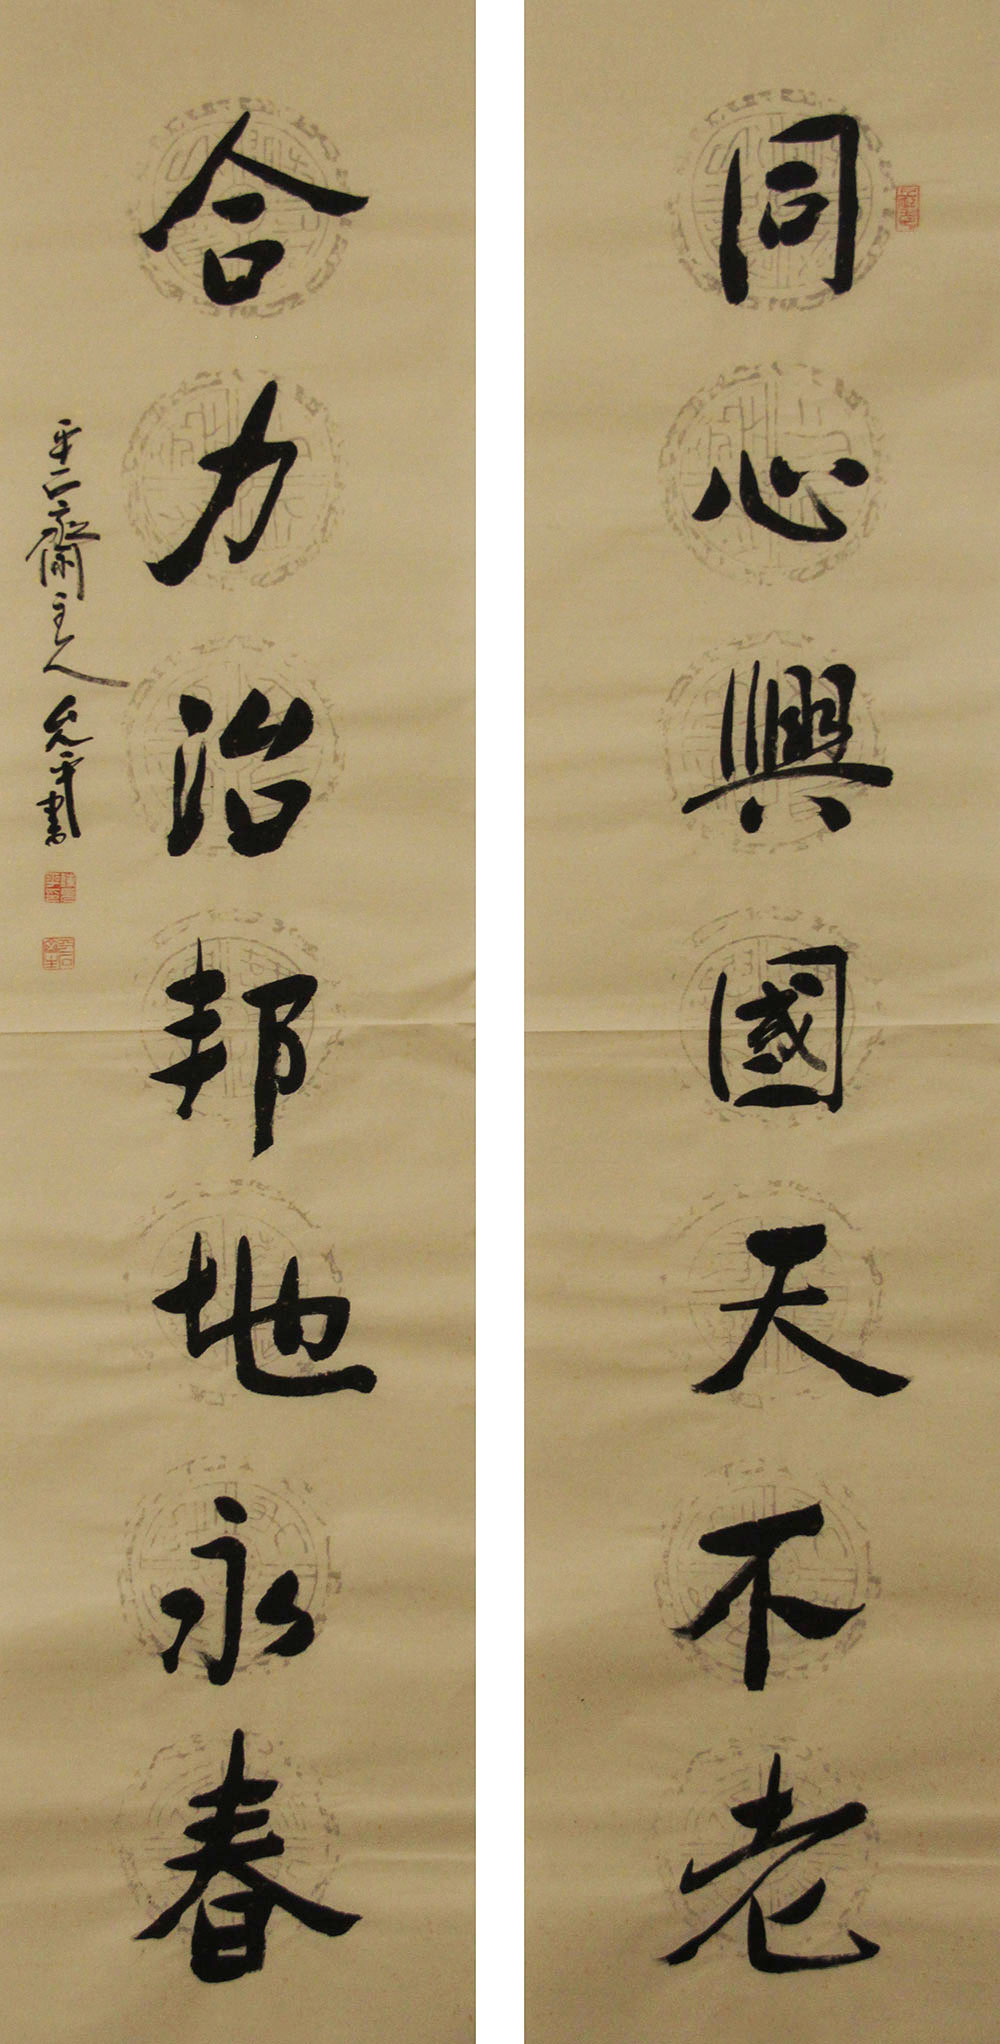 同心興國天不老
合力治邦地永春
齋主人允平書